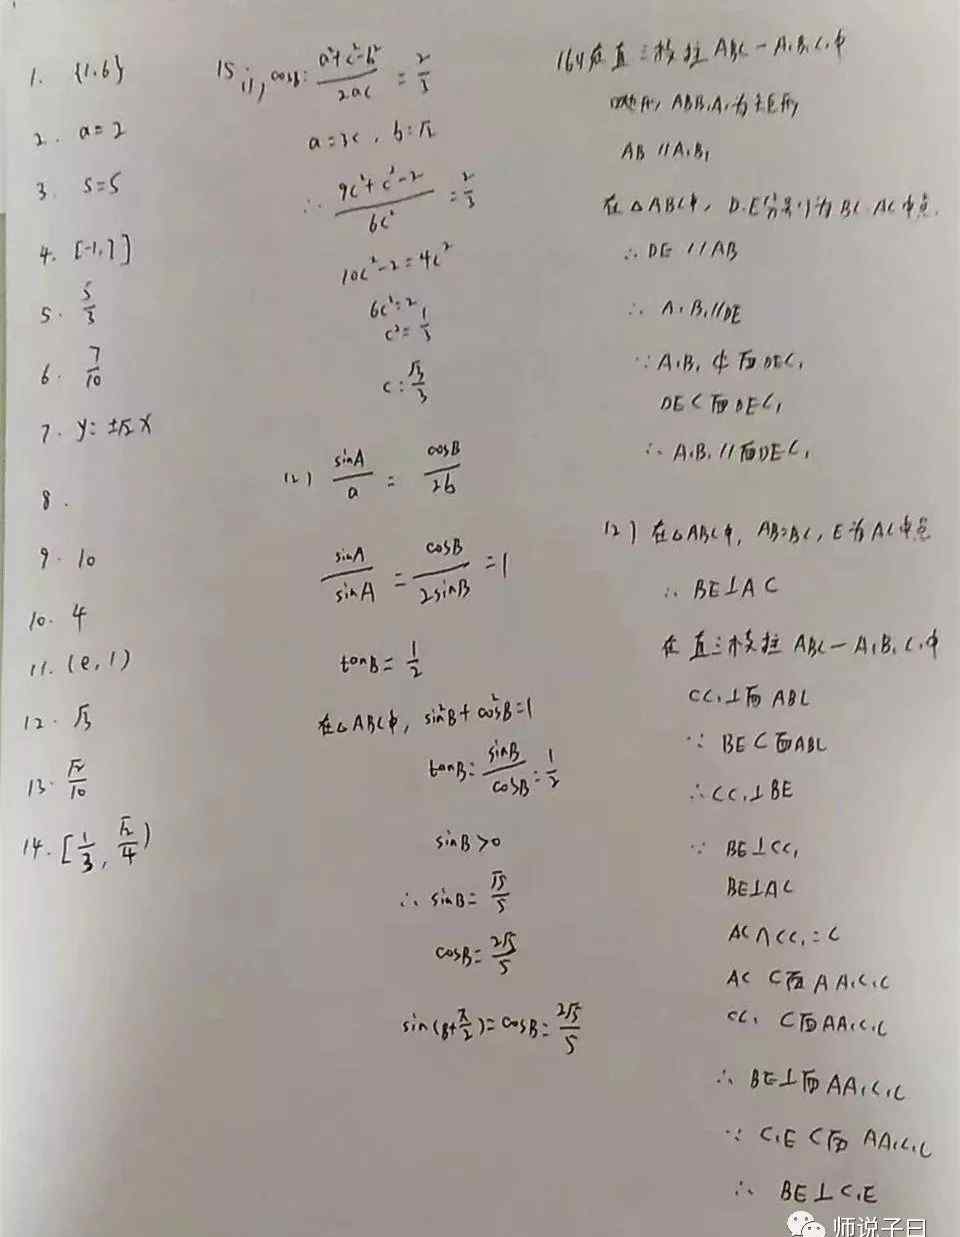 1. {1,6}
2. a=2
3. S=5
4. [-1,7]
5. 5/3
6. 7/10
7. y=±√2x
8.
9. 10
10. 4
11. (e,1)
12. √3
13. √2/10
14. [1/3, √2/4)
15 (1) cosB=(a²+c²-b²)/2ac=2/3
a=3c, b=√2
∴ (9c²+c²-2)/6c²=2/3
10c²-2=4c²
6c²=2
c²=1/3
c=√3/3
(2) sinA/a = cosB/2b
sinA/sinA = cosB/2sinB =1
tanB=1/2
在△ABC中, sin²B+cos²B=1
tanB=sinB/cosB=1/2
sinB>0
∴ sinB=√5/5
cosB=2√5/5
sin(B+π/2)=cosB=2√5/5
16(1)在直三棱柱ABC-A₁B₁C₁中
四边形ABB₁A₁为矩形
AB//A₁B₁
在△ABC中, D.E分别为BC.AC中点.
∴ DE//AB
∴ A₁B₁//DE
∵ A₁B₁⊄面DEC₁
DE⊂面DEC₁
∴ A₁B₁//面DEC₁
(2) 在△ABC中, AB=BC, E为AC中点
∴ BE⊥AC
在直三棱柱ABC-A₁B₁C₁中
CC₁⊥面ABC
∵ BE⊂面ABC
∴CC₁⊥BE
∵ BE⊥CC₁
BE⊥AC
AC∩CC₁=C
AC⊂面AA₁C₁C
CC₁⊂面AA₁C₁C
∴ BE⊥面AA₁C₁C
∵ C₁E⊂面AA₁C₁C
∴ BE⊥C₁E
师说子曰